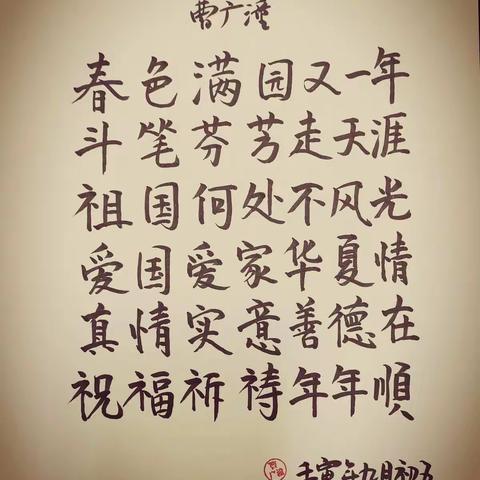 曹广
春色满园又一年
斗笔芬芳走天涯
祖国何处不风光
爱国爱家华夏情
真情实意善德在
祝福祈祷年年順
壬寅年九月初五